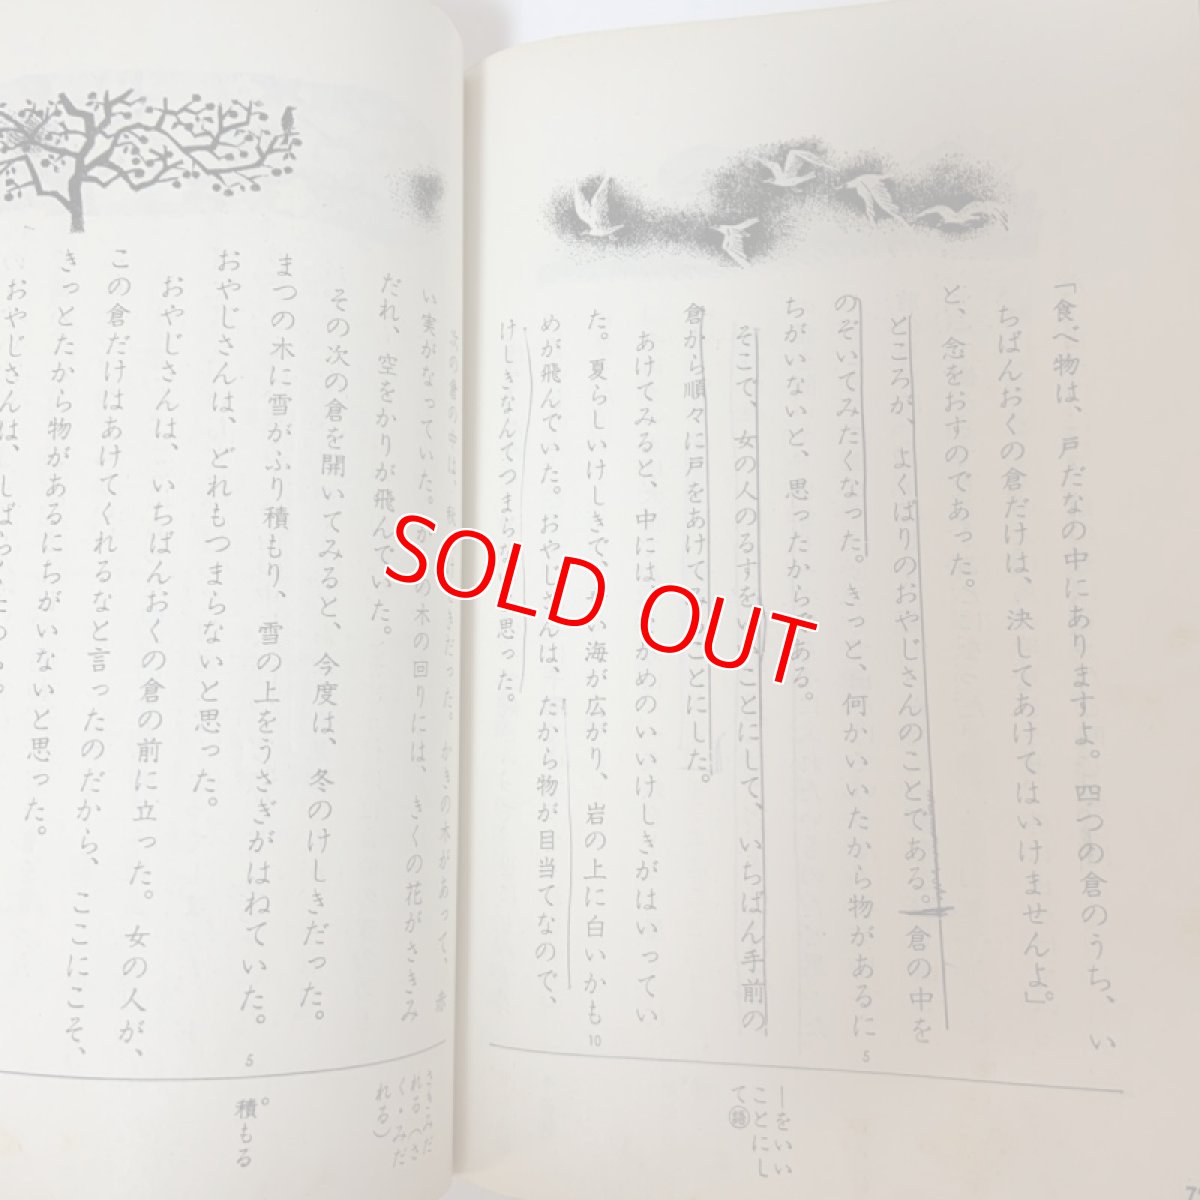 「食べ物は、戸だなの中にありますよ。四つの倉のうち、い
ちばんおくの倉だけは、決してあけてはいけませんよ」。
と、念をおすのであった。
ところが、よくばりのおやじさんのことである。倉の中を
のぞいてみたくなった。きっと、何かいいたから物があるに
ちがいないと、思ったからである。
そこで、女の人のるすをいいことにして、いちばん手前の
倉から順々に戸をあけてみることにした。
あけてみると、中には、かめのいいけしきがはいってい
た。夏らしいけしきで、い海が広がり、岩の上に白いかも
めが飛んでいた。おやじさんは、たから物が目当てなので、
けしきなんてつまらな思った。
5
10
ーをいい
ことにし
て
次の倉の中は、秋きだった。かきの木があって、赤
い実がなっていた。かの木の回りには、きくの花がさきみ
だれ、空をかりが飛んでいた。
その次の倉を開いてみると、今度は、冬のけしきだった。
まつの木に雪がふり積もり、雪の上をうさぎがはねていた。
おやじさんは、どれもつまらないと思った。
おやじさんは、いちばんおくの倉の前に立った。女の人が、
この倉だけはあけてくれるなと言ったのだから、ここにこそ、
きっとたから物があるにちがいないと思った。
おやじさんは、しばらく
5
さきみだ
れる（さ
く・みだ
れる）
積もる
SOLD OUT